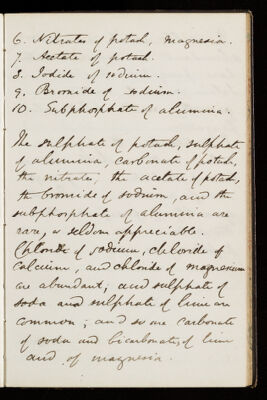 6. Nitrates of potash, magnesia.
7. Acetate of potash.
8. Iodide of sodium.
9. Bromide of sodium.
10. Subphosphate of alumina.
The sulphate of potash, sulphate
of alumina, carbonate of potash,
the nitrates, the acetate of potash,
the bromide of sodium, and the
subphosphate of alumina are
rare, or seldom appreciable.
Chloride of sodium, chloride of
calcium, and chloride of magnesium
are abundant; and sulphate of
soda and sulphate of lime are
common; and so are carbonate
of soda and bicarbonates of lime
and of magnesia.